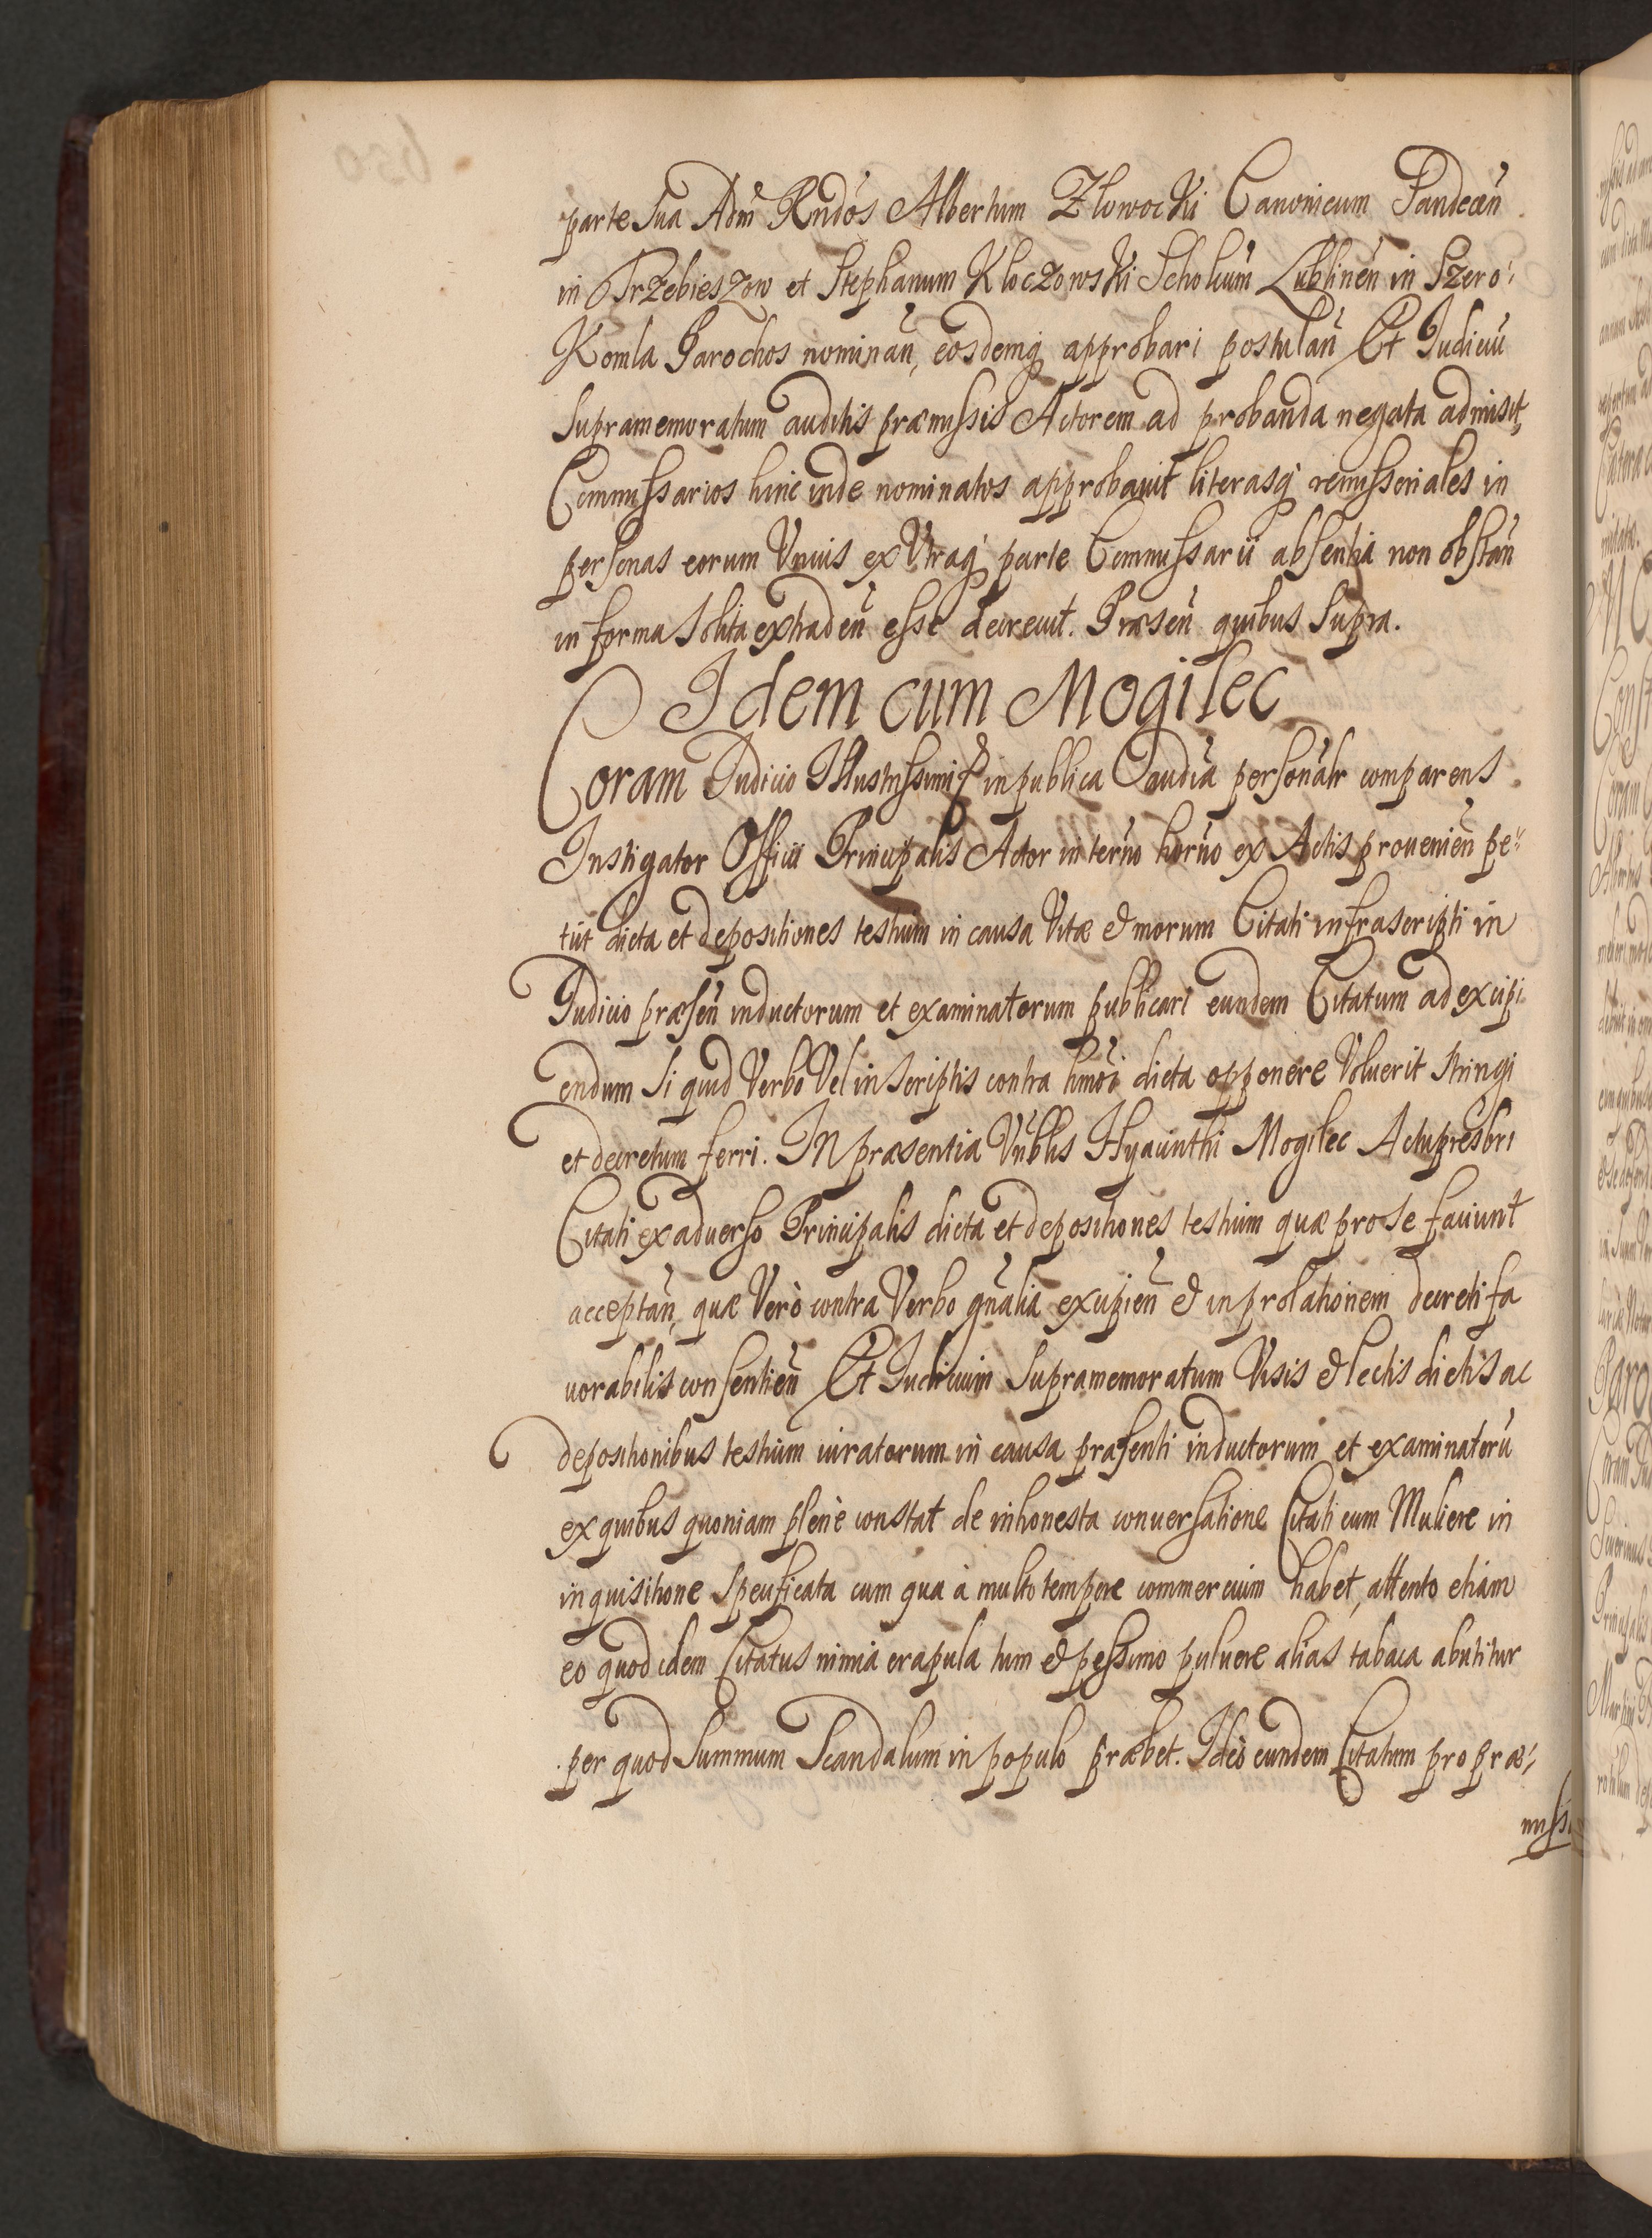 parte sua Adm̃ Rndos Albertum Złowocki Canonicum Pandecen̄
in Trzebieszow et Stephanum Kloczowski Scholcum̄ Lublinen̄ in Szero-
Komla Parochos nominan̄, eosdemq̨ approbari postulan̄ Et Judiciū
supramemoratum auditis præmissis Actorem ad probanda negata admisit,
Commissarios hinc inde nominatos approbauit literasq̨ remissoriales in
personas eorum Vnius ex Vtraq̨ parte Commissarii absentia non obstan̄
in forma solita extraden̄ esse decreuit. Præsen̄ quibus supra.
Idem cum Mogilec
Coram Judicio Illustrissimi in publica Audīa personalr comparens
Instigator Officii Principalis Actor in term̄o hod̄no ex Actis prouenien̄ pe-
tiit dicta et depositiones testium in causa Vitæ & morum Citati infrascripti in
Judicio præsen̄ inductorum et examinatorum publicari eundem Citatum ad excipi-
endum si quid Verbo Vel in scriptis contra hmōi dicta opponere Voluerit stringi
et decretum ferri. In præsentia Vnblis Hyacinthi Mogilec Actupresbri
Citati ex aduerso Principalis dicta et depositiones testium quæ pro se faciunt
acceptan̄, quæ Verò contra Verbo gñalia excipien̄ & in prolationem decreti fa
uorabilis consentien̄ Et Judicium supramemoratum Visis & lectis dictis ac
depositionibus testium iuratorum in causa præsenti inductorum et examinatorū
ex quibus quoniam plenè constat de inhonesta conuersatione Citati cum Muliere in
inquisitione specificata cum qua à multo tempore commercium habet, attento etiam
eo quod idem Citatus nimia crapula tum & pessimo puluere alias tabaca abutitur
per quod summum Scandalum in populo præbet. Ideò eundem Citatum pro præ-
missi